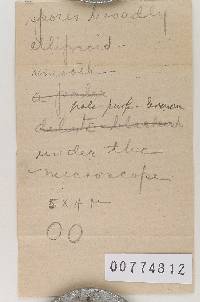 spores broadly
ellipsoid -
smooth -
a paler
pale purp. brown
under the
microscope
5 x 4 µ
00774812